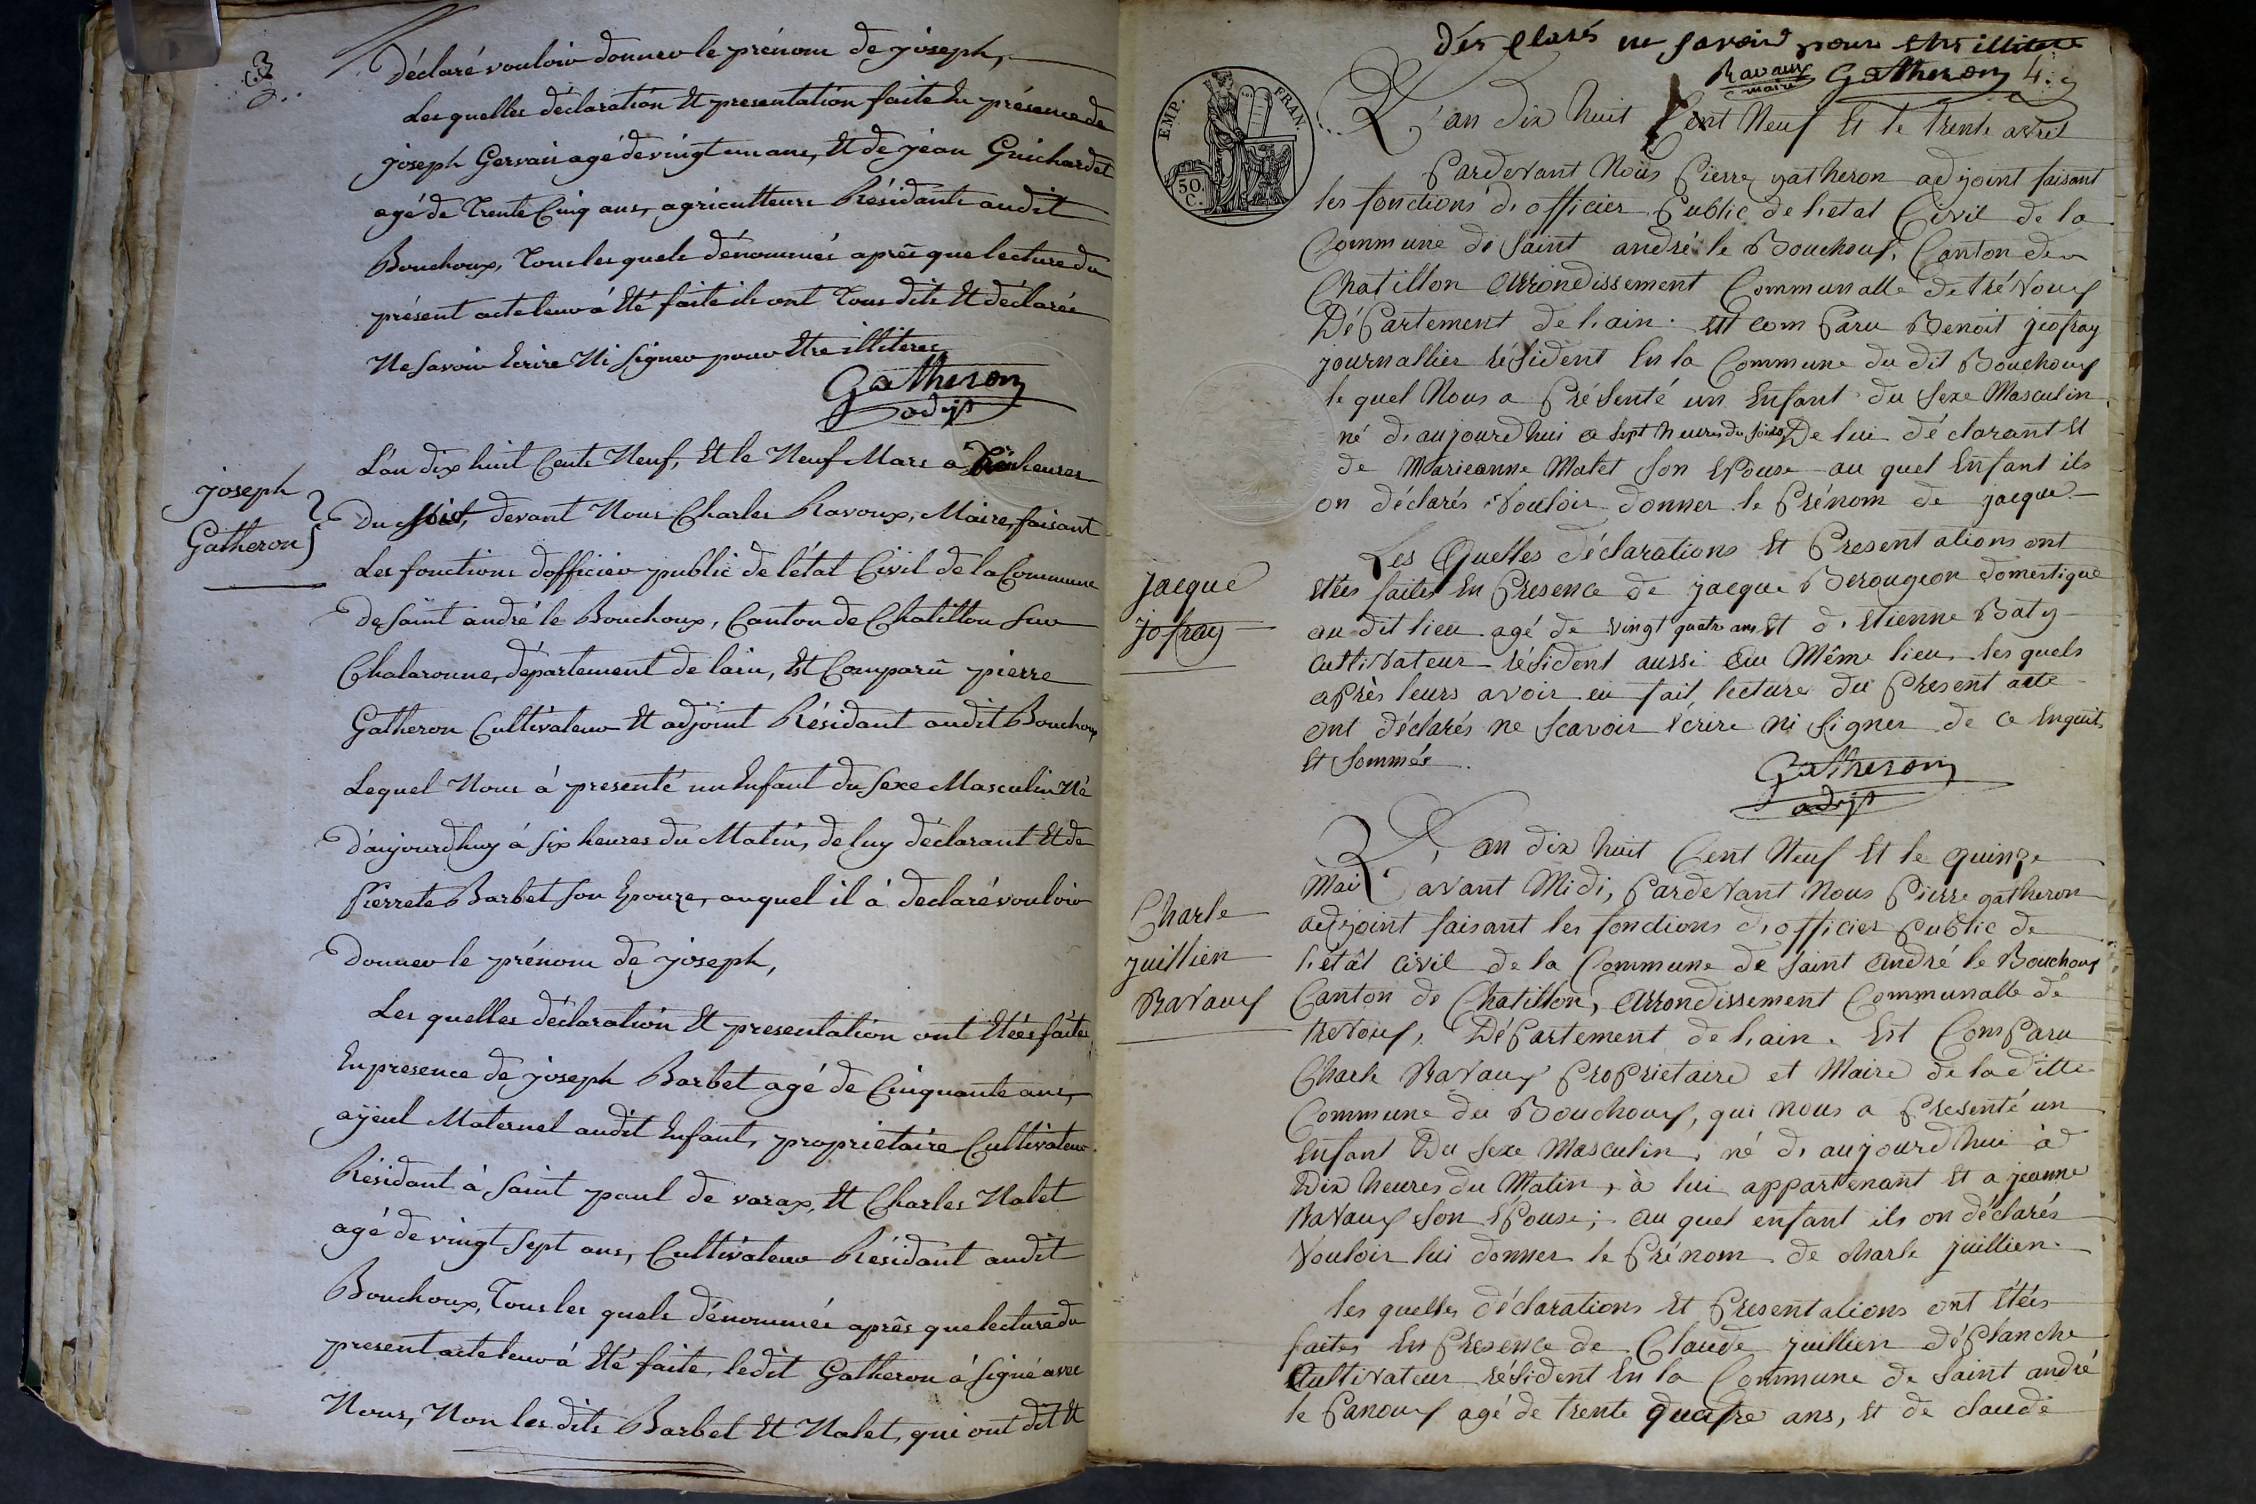 3
Déclaré vouloir donner le prénom de joseph,
Les quelles déclaration Et presentation faite En présence de
joseph Gervais agé de vingt un ans, Et de jéan Guichardet
agé de Trente Cinq ans, agriculteurs Résidants audit
Bouchoux, Tous les quels dénommés après que lecture du
présent acte leur á Eté faite ils ont Tous dits Et déclarés
Ne Savoir Ecrire Ni Signer pour Etre illiteres
Gatheron
adjt
joseph
Gatheron
L'an dix huit Cents Neuf, Et le Neuf Mars a heures
Du Soir, devant Nous Charles Ravoux, Maire, faisant
Les fonctions d'officier public de l'état Civil de la Commune
De Saint andré le Bouchoux, Canton de Chatillon Sur
Chalaronne, département de lain, Est Comparû pierre
Gatheron Cultivateur Et adjoint Résidant audit Bouchoux
Lequel Nous á presenté un Enfant du Sexe Masculin Né
D'aujourdhuy á Six heures du Matin, de luy déclarant Et de
Pierrete Barbet Son Epouze, auquel il á declaré vouloir
Donner le prénom de joseph,
Les quelles déclaration Et presentation ont Etées faites
En presence de joseph Barbet agé de Cinquante ans,
ayeul Maternel audit Enfant, proprietaire Cultivateur
Résidant à Saint paul de varax, Et Charles Nalet
agé de vingt Sept ans, Cultivateur Résidant audit
Bouchoux, Tous les quels dénommés après que lecture du
present acte leur á Eté faite, ledit Gatheron á Signé avec
Nous, Non les dits Barbet Et Nalet, qui ont dit Et
dés Clarés ne Savoir pour Etre illitere
Ravaux
maire
Gatheron
4.
EMP. FRAN.
50.
C.
L'an Dix huit Cent Neuf Et le trente avril
Pardevant Nous Pierre gatheron adjoint faisant
les fonctions d'officier Public de l'etat Civil de la
Commune de Saint andré le Bouchoux, Canton de
Chatillon Arrondissement Communalle de trévoux
DéPartement de l'ain. Est com Paru Benoit jeofray
journallier résident En la Commune du dit Bouchoux
le quel Nous a Présenté un Enfant du Sexe Masculin
né d'aujourdhui a Sept heures du Soir De lui déclarant Et
de Marieanne Matet Son Epouse au quel Enfant ils
on déclarés Vouloir donner le Prénom de jacque
Jacque
jofray
Les Quelles déclarations Et Presentations ont
Etées faites En Presence de jacque Berougeon domestique
au dit lieu agé de vingt quatre ans Et d'Etienne Baty
Cultivateur résident aussi au Même lieu les quels
aPrès leurs avoir eu fait lecture du Present acte
ont déclarés ne Scavoir écrire ni Signer de ce Enquits
Et Sommés.
Gatheron
adjt
Charle
juillien
Ravaux
L'an dix huit Cent Neuf Et le quinze
Mai avant Midi, Pardevant Nous Pierre gatheron
adjoint faisant les fonctions d'officier Public de
l'etât Civil de la Commune de Saint André le Bouchoux
Canton de Chatillon, Arrondissement Communalle de
trevoux, DéPartement de l'ain. Est ComParu
Charle Ravaux ProPrietaire et Maire de la ditte
Commune du Bouchoux, qui nous a Presenté un
Enfant Du Sexe Masculin, né d'aujourdhui à
Dix heures du Matin, à lui appartenant Et a jeanne
Ravaux Son EPouse; au quel enfant ils on déclarés
Vouloir lui donner le Prénom de charle juillien.
les quelles déclarations Et Presentations ont Etées
faites En Presence de Claude juillien déPlanche
Cultivateur résident En la Commune de Saint andré
le Panoux agé de trente quatre ans, Et de claude